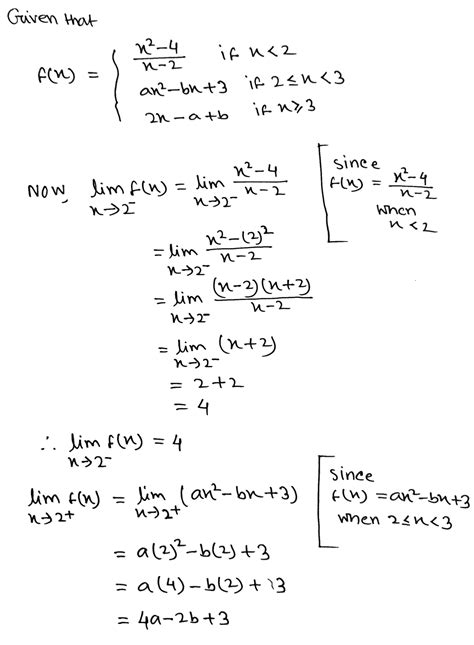 Given that
f(x) = { x²-4 / x-2 if x<2
ax²-bx+3 if 2≤x<3
2x-a+b if x≥3
Now, lim x→2⁻ f(x) = lim x→2⁻ x²-4 / x-2 [ since f(x) = x²-4 / x-2 when x<2
= lim x→2⁻ x²-(2)² / x-2
= lim x→2⁻ (x-2)(x+2) / x-2
= lim x→2⁻ (x+2)
= 2+2
= 4
∴ lim x→2⁻ f(x) = 4
lim x→2⁺ f(x) = lim x→2⁺ (ax²-bx+3) [ since f(x) = ax²-bx+3 when 2≤x<3
= a(2)²-b(2)+3
= a(4)-b(2)+3
= 4a-2b+3